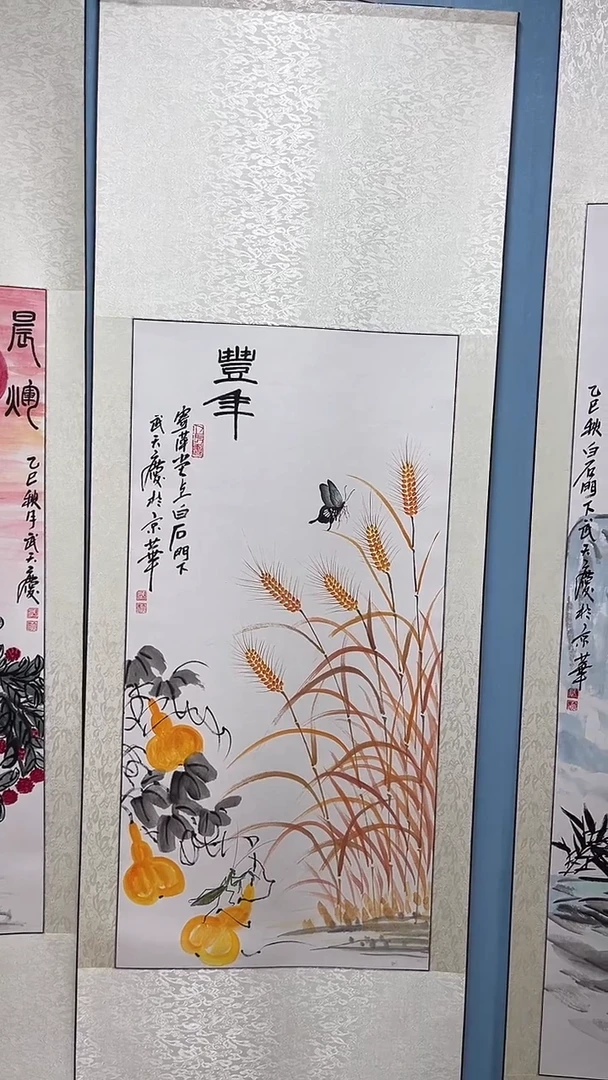 豐年
寄萍堂上白石門下
武天慶於京華
晨煇
乙巳秋月武天慶
乙巳秋白石門下武天慶於京華